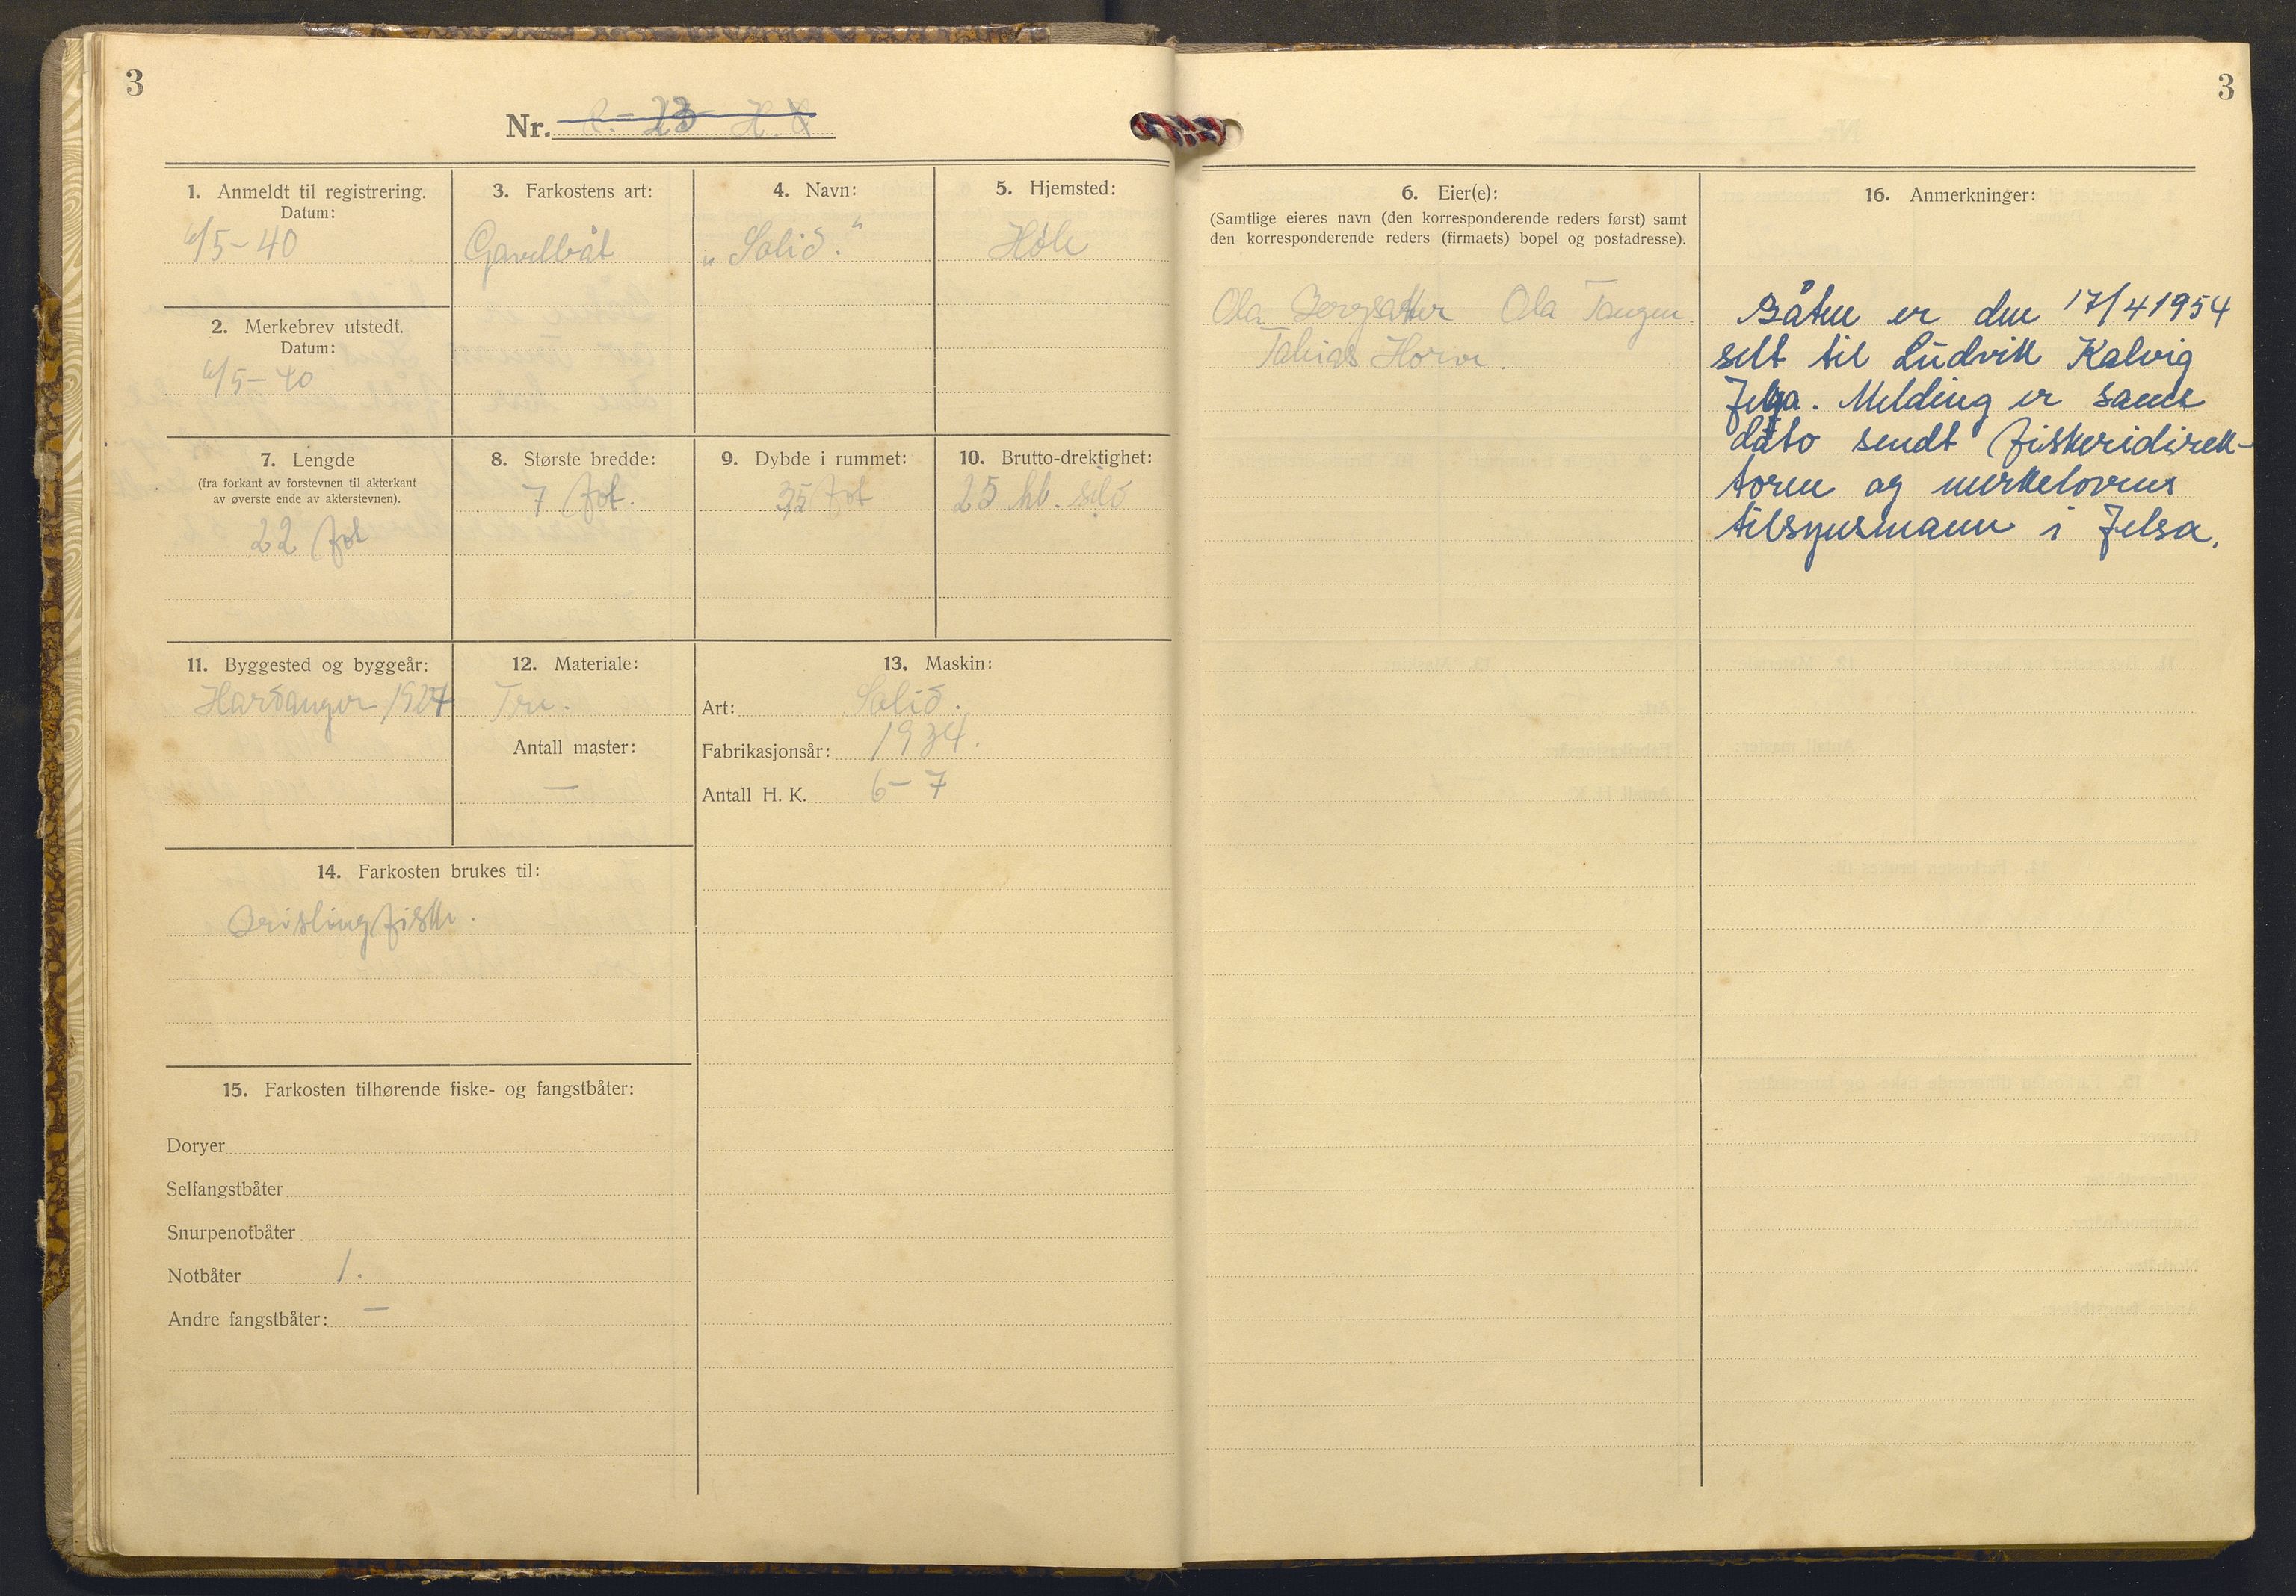 3
Nr. R.- 23 H.
1. Anmeldt til registrering.
Datum:
6/5-40
2. Merkebrev utstedt.
Datum:
6/5-40
3. Farkostens art:
Gavelbåt
4. Navn:
„Solid."
5. Hjemsted:
Høle
7. Lengde
(fra forkant av forstevnen til akterkant
av øverste ende av akterstevnen).
22 fot
8. Største bredde:
7 fot.
9. Dybde i rummet:
3,5 fot
10. Brutto-drektighet:
25 hl. sild
11. Byggested og byggeår:
Hardanger 1924
12. Materiale:
Tre.
Antall master:
—
13. Maskin:
Art: Solid.
Fabrikasjonsår: 1934.
Antall H. K. 6-7
14. Farkosten brukes til:
Brislingfiske.
15. Farkosten tilhørende fiske- og fangstbåter:
Doryer
Selfangstbåter
Snurpenotbåter
Notbåter 1.
Andre fangstbåter: —
3
6. Eier(e):
(Samtlige eieres navn (den korresponderende reders først) samt
den korresponderende reders (firmaets) bopel og postadresse).
Ola Bergsaker Ola Tangen.
Tobias Horve.
16. Anmerkninger:
Båten er den 17/4 1954
selt til Ludvik Kalvig
Jelsa. Melding er same
dato sendt fiskeridirek-
toren og merkelovens
tilsynsmann i Jelsa.